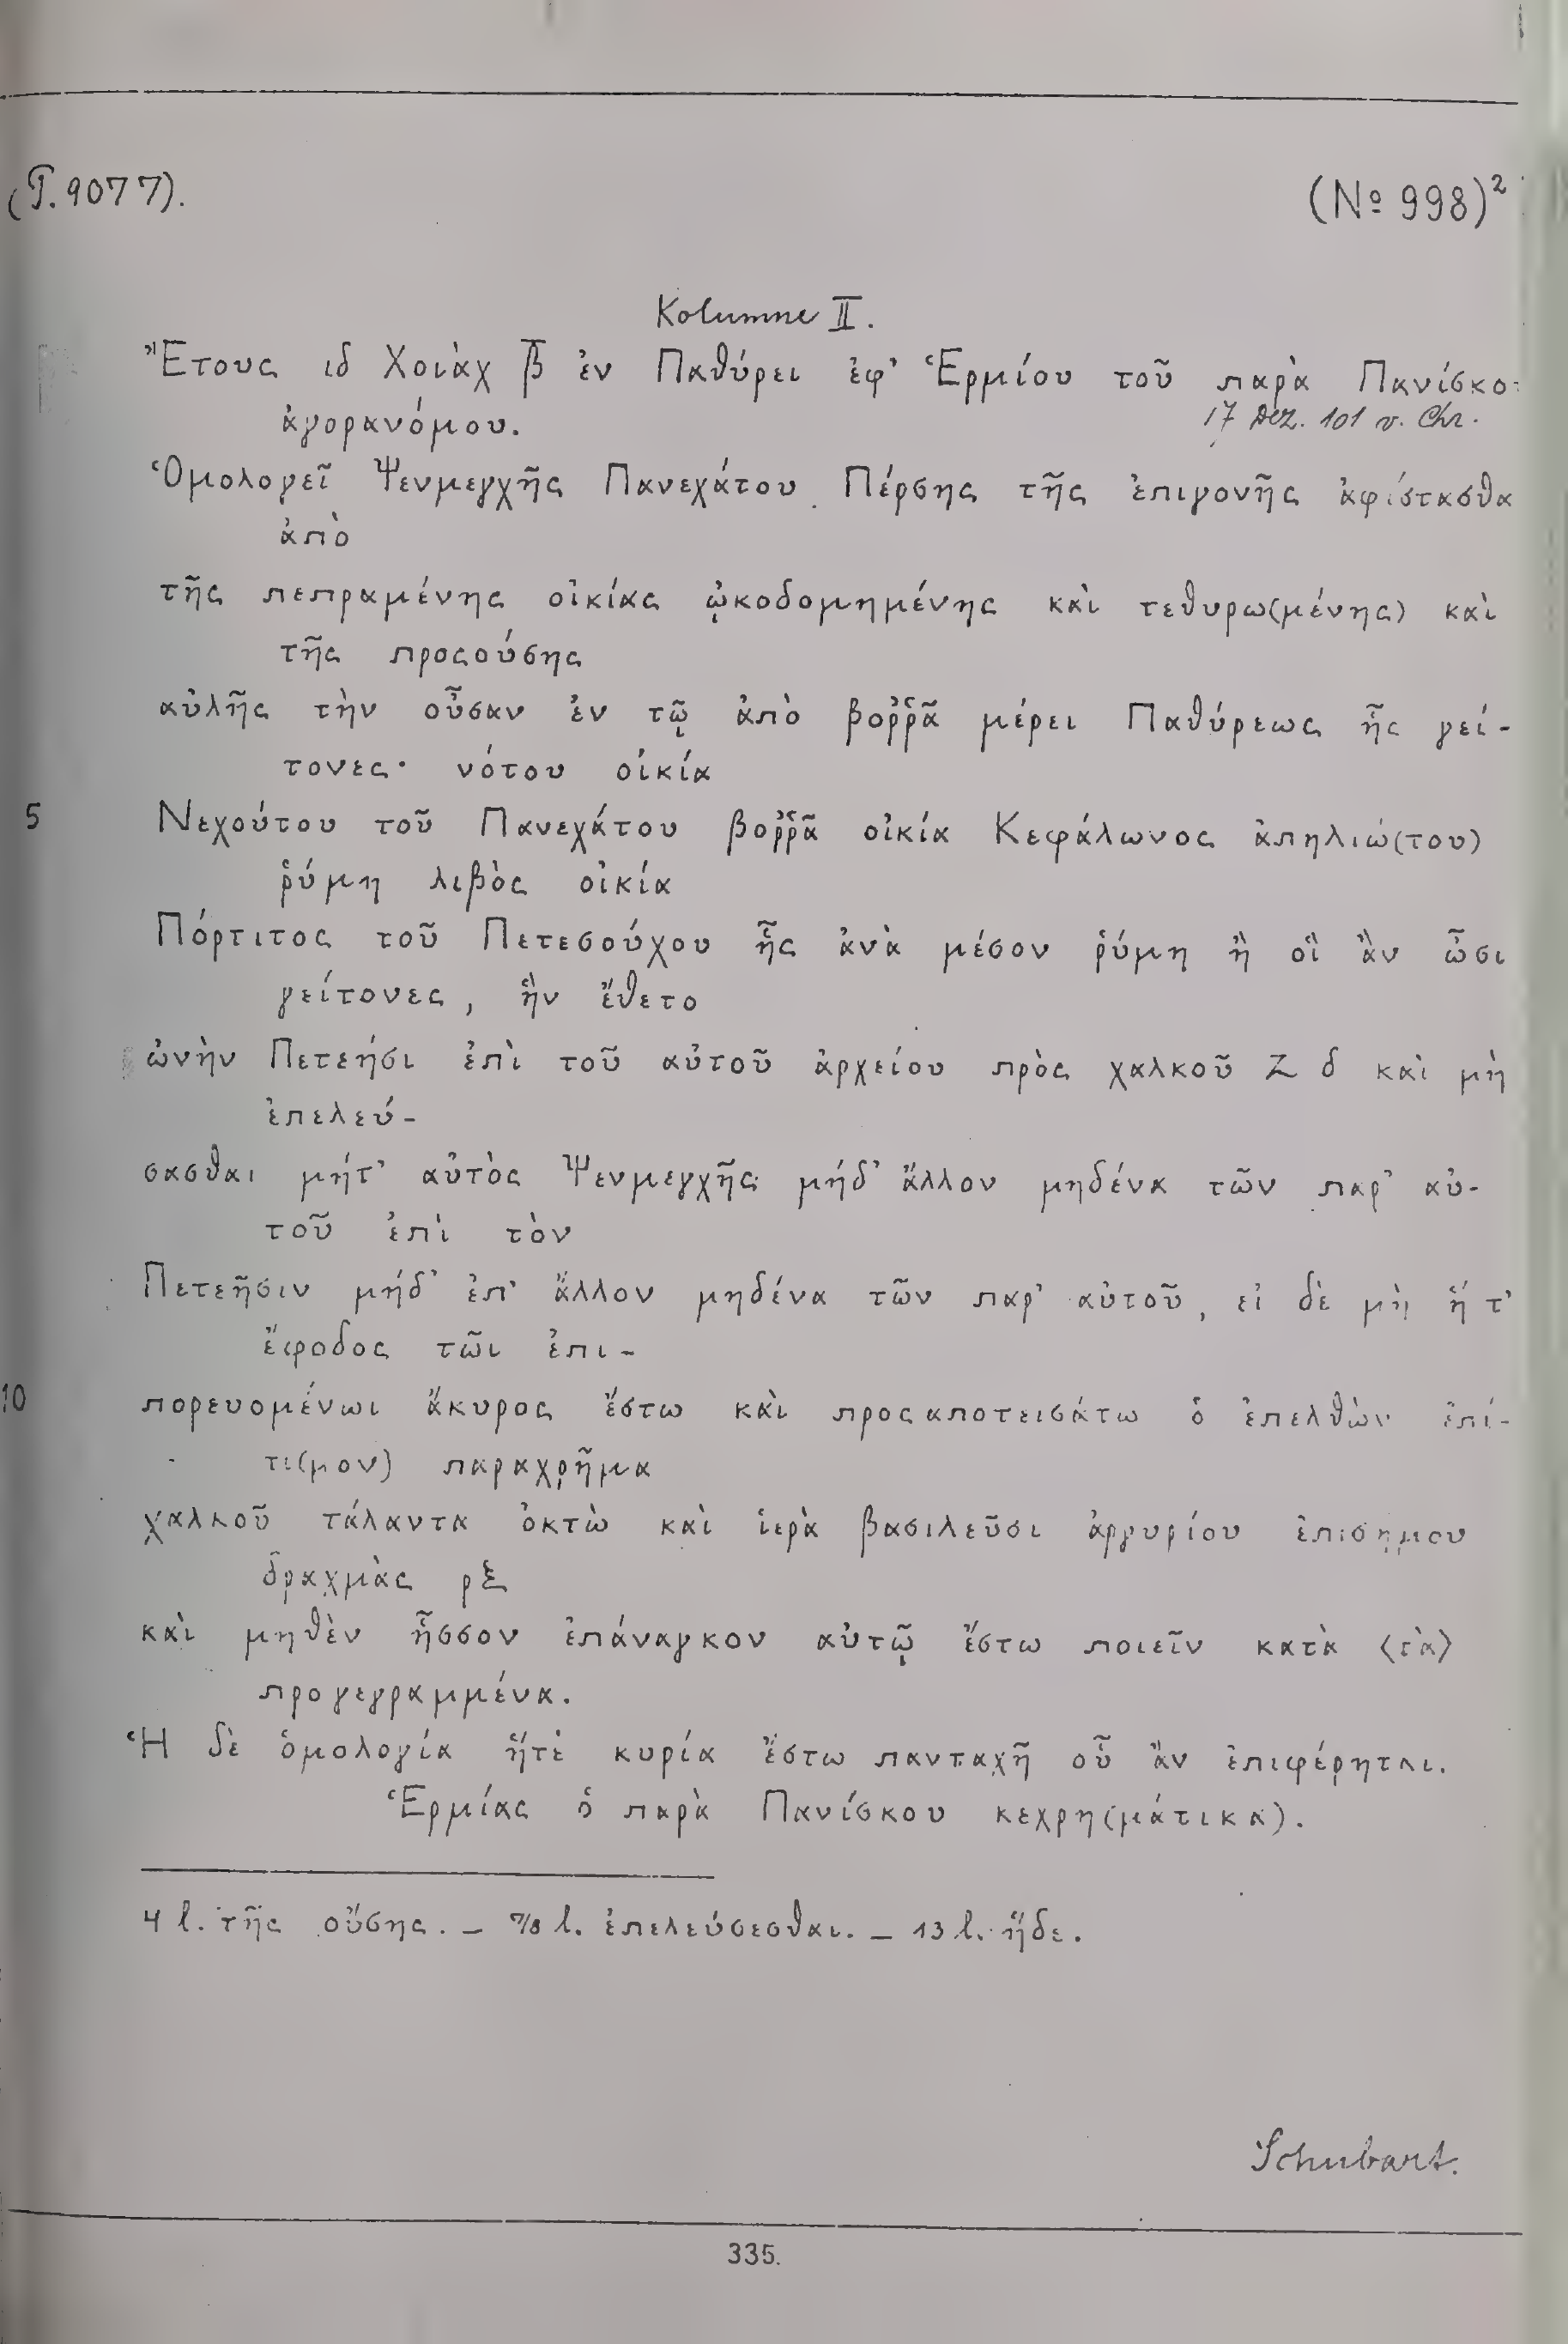 (P. 9077).
(No 998)²
Kolumne II.
Ἔτους ιδ Χοιὰχ β̅ ἐν Παθύρει ἐφ' Ἑρμίου τοῦ παρὰ Πανίσκο
ἀγορανόμου.
17 Dez. 101 v. Chr.
Ὁμολογεῖ Ψενμεγχῆς Πανεχάτου Πέρσης τῆς ἐπιγονῆς ἀφίστασθα
ἀπὸ
τῆς πεπραμένης οἰκίας ᾠκοδομημένης καὶ τεθυρω(μένης) καὶ
τῆς προςούσης
αὐλῆς τὴν οὖσαν ἐν τῷ ἀπὸ βοῤῥᾶ μέρει Παθύρεως ἧς γεί-
τονες· νότου οἰκία
5 Νεχούτου τοῦ Πανεχάτου βοῤῥᾶ οἰκία Κεφάλωνος ἀπηλιώ(του)
ῥύμη λιβὸς οἰκία
Πόρτιτος τοῦ Πετεσούχου ἧς ἀνὰ μέσον ῥύμη ἢ οἳ ἂν ὦσι
γείτονες, ἣν ἔθετο
ὠνὴν Πετεήσι ἐπὶ τοῦ αὐτοῦ ἀρχείου πρὸς χαλκοῦ Ζ δ καὶ μὴ
ἐπελεύ-
σασθαι μήτ' αὐτὸς Ψενμεγχῆς μήδ' ἄλλον μηδένα τῶν παρ' αὐ-
τοῦ ἐπὶ τὸν
Πετεῆσιν μήδ' ἐπ' ἄλλον μηδένα τῶν παρ' αὐτοῦ, εἰ δὲ μὴ ἥ τ'
ἔφοδος τῶι ἐπι-
10 πορευομένωι ἄκυρος ἔστω καὶ προςαποτεισάτω ὁ ἐπελθὼν ἐπί-
τι(μον) παραχρῆμα
χαλκοῦ τάλαντα ὀκτὼ καὶ ἱερὰ βασιλεῦσι ἀργυρίου ἐπισήμου
δραχμὰς ρξ
καὶ μηθὲν ἧσσον ἐπάναγκον αὐτῷ ἔστω ποιεῖν κατὰ ⟨τὰ⟩
προγεγραμμένα.
Ἡ δὲ ὁμολογία ἥτε κυρία ἔστω πανταχῆ οὗ ἂν ἐπιφέρηται.
Ἑρμίας ὁ παρὰ Πανίσκου κεχρη(μάτικα).
4 l. τῆς οὔσης. – 7/8 l. ἐπελεύσεσθαι. – 13 l. ἥδε.
Schubart.
335.